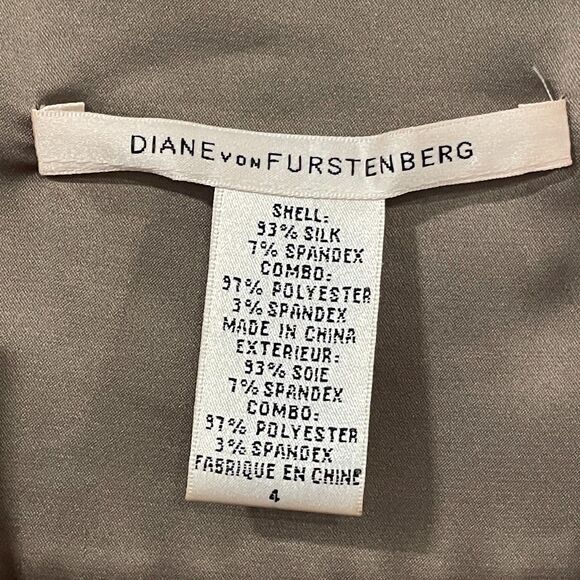 DIANE VON FURSTENBERG
SHELL:
93% SILK
7% SPANDEX
COMBO:
97% POLYESTER
3% SPANDEX
MADE IN CHINA
EXTERIEUR:
93% SOIE
7% SPANDEX
COMBO:
97% POLYESTER
3% SPANDEX
FABRIQUE EN CHINE
4